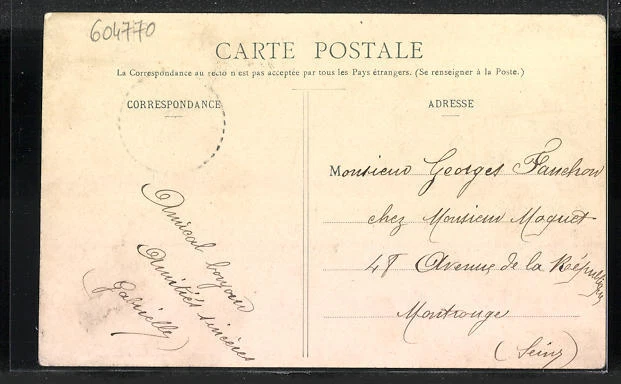 604770
CARTE POSTALE
La Correspondance au recto n'est pas acceptée par tous les Pays étrangers. (Se renseigner à la Poste.)
CORRESPONDANCE
Amical bonjour
Amitiés sincères
(Gabrielle)
ADRESSE
Monsieur Georges Fauchon
chez Monsieur Maquet
48 Avenue de la République
Montrouge
(Seine)